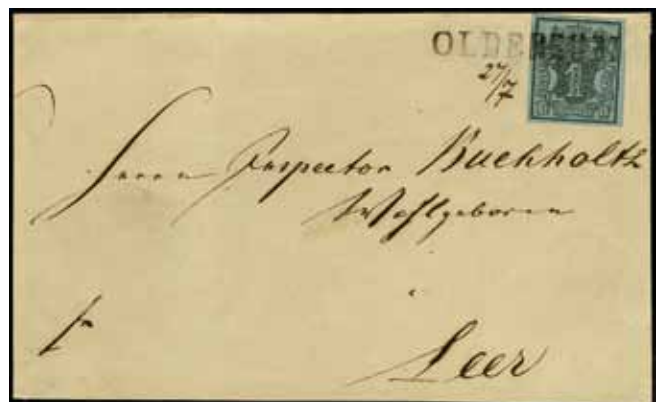 OLDERSUM
27/7
1
Herrn Inspector Buchholtz
Wohlgeboren
fr
Leer